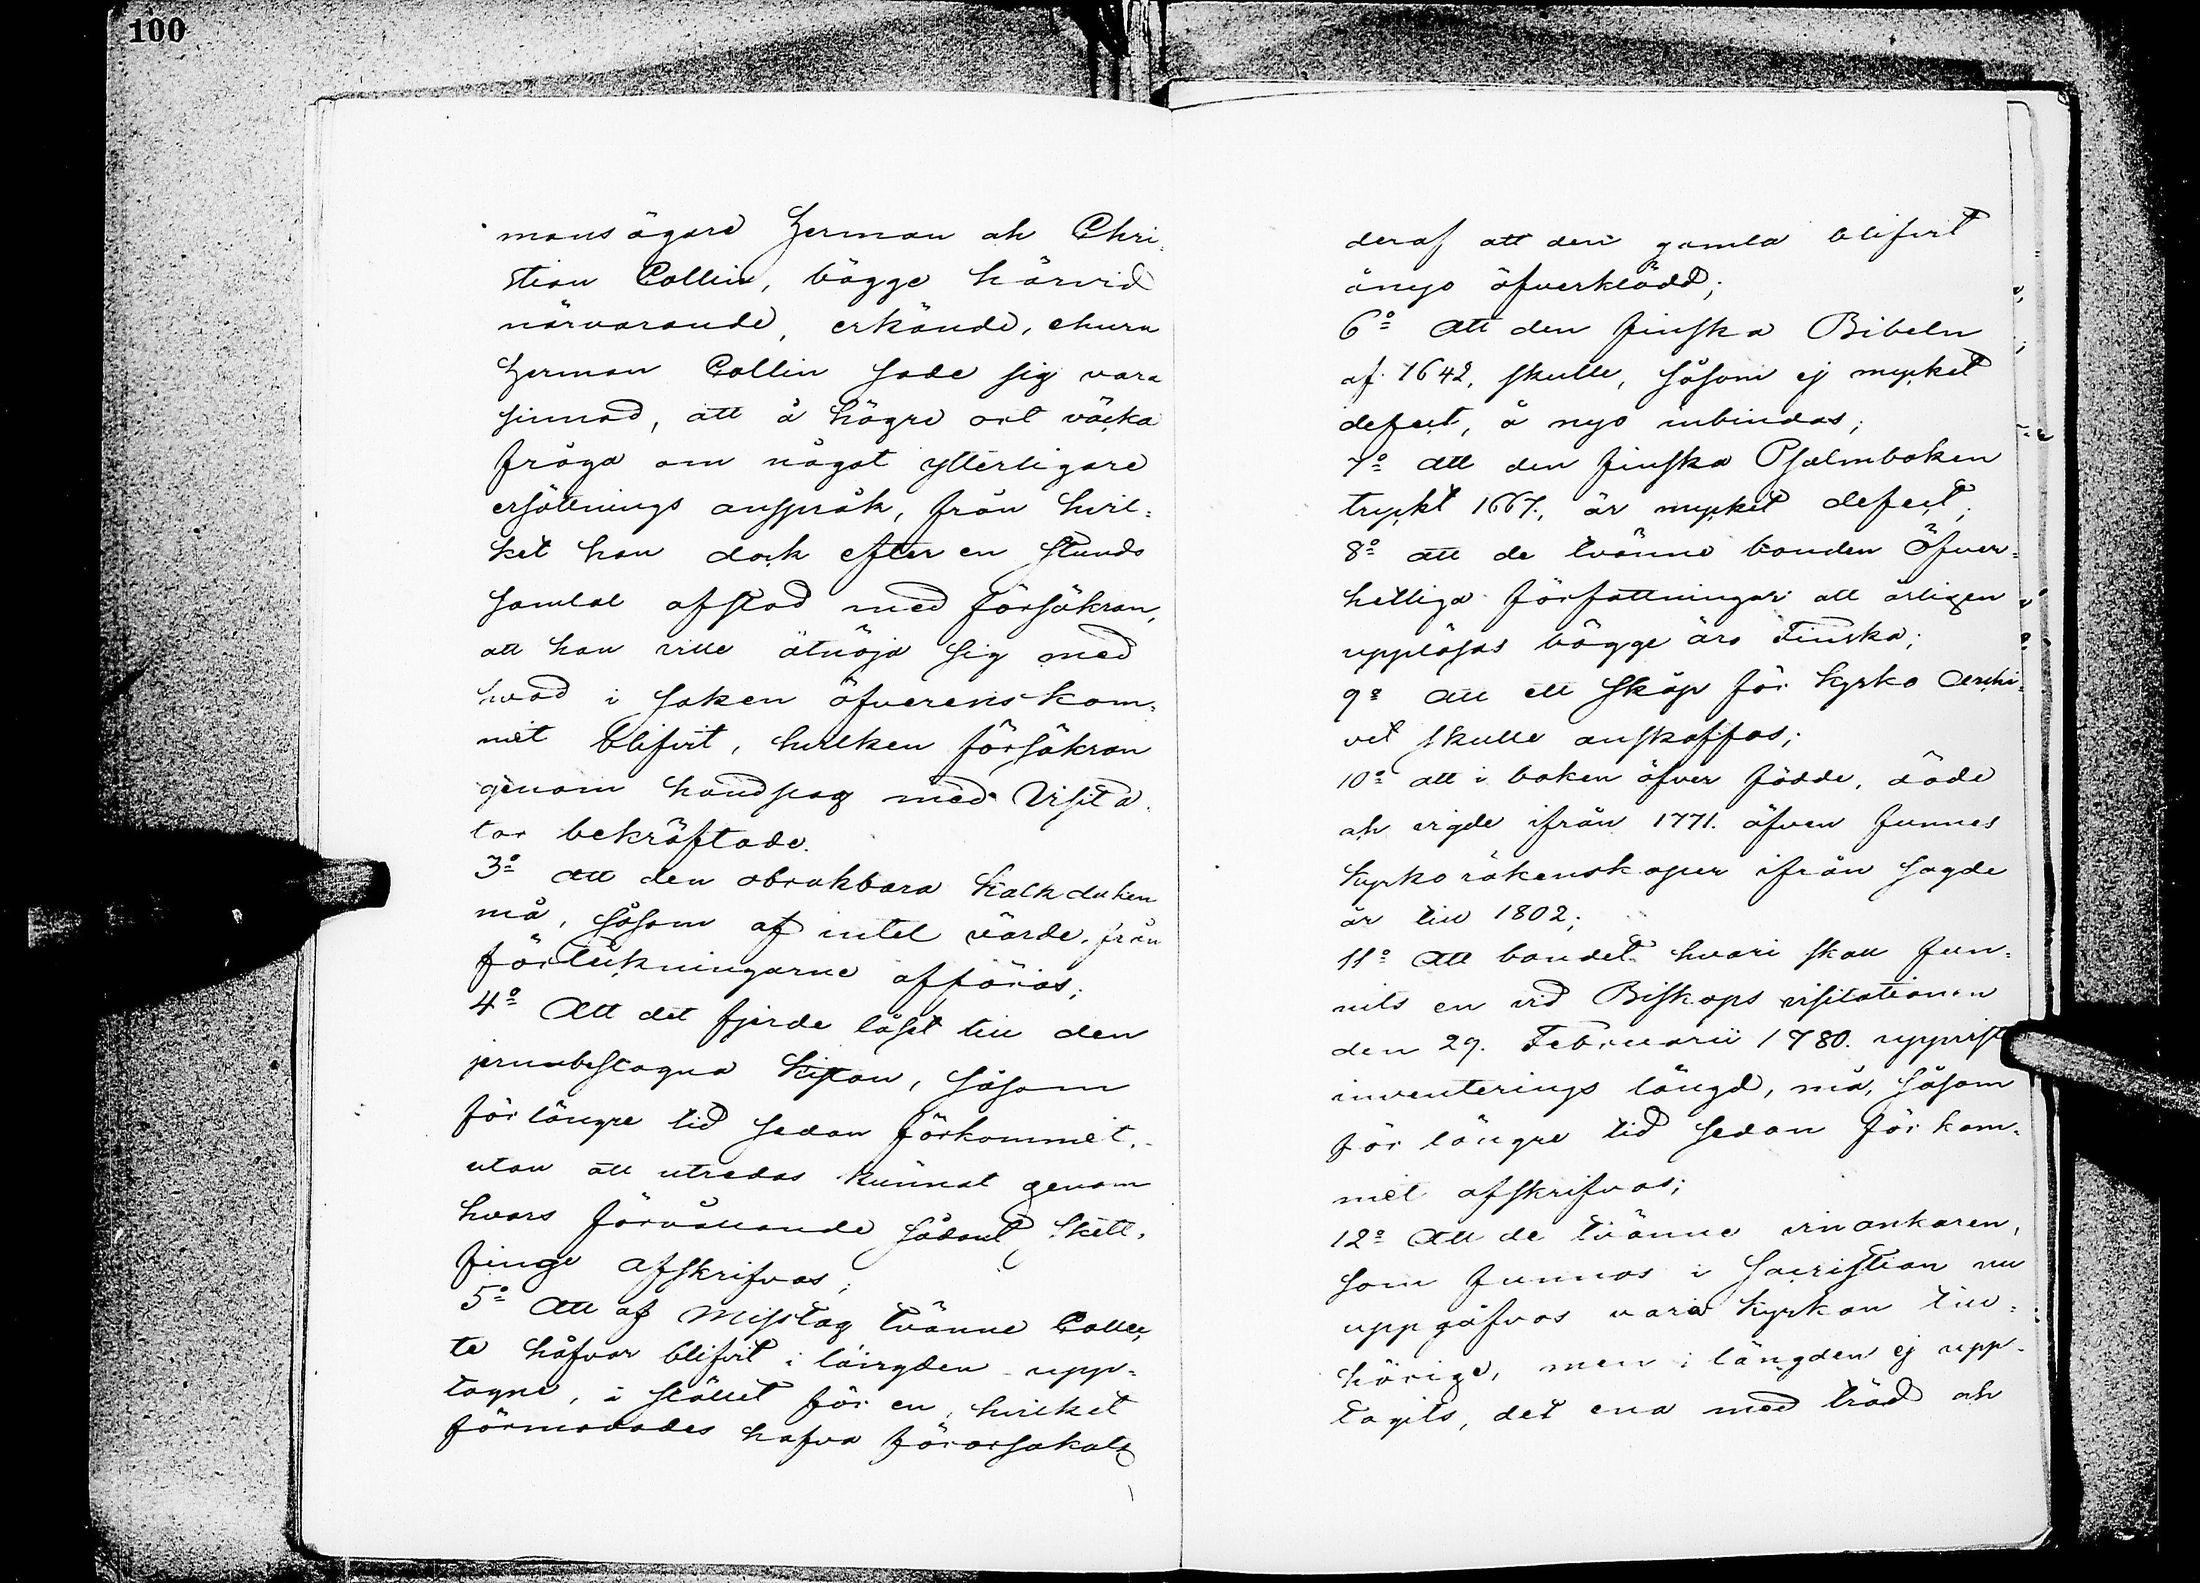 100
mans ägare Herman ah Chri-
stian Collin, bägge härvid
närvarande, erkände, ehuru
Herman Collin sade sig vara
sinnad, att å högre ort väcka
fråga om något ytterligare
ersättnings anspråk, från hvil-
ket han dock efter en stunds
samtal afstod med försäkran,
att han ville åtnöja sig med
hvad i saken öfverenskom-
mit blifvit, hvilken försäkran
genom handslag med Visita-
tor bekräftade.
3º att den obrukbara Kalkduken
må, såsom af intet värde, från
förteckningarne afföras;
4º Att det fjerde låset till den
jernbeslagna Kistan, såsom
för längre tid sedan förkommit,
utan att utredas kunnat genom
hvars förvållande sådant skett,
finge afskrifvas;
5º Att af Misstag tvänne Collec
te håfvar blifvit i längden upp-
tagne, i stället för en, hvilket
förmodades hafva förorsakats
deraf att den gamla blifvit
ånyo öfverklädd;
6º Att den finska Bibeln
af 1642, skulle, såsom ej mycket
defect, å nyo inbindas;
7º att den finska Psalmboken
tryckt 1667., är mycket defect,
8º att de tvänne banden Öfver-
hetliga författningar att årligen
uppläsas bägge äro Finska;
9º att ett skåp för Kyrko Archi-
vet skulle anskaffas;
10º att i boken öfver födde, döde
ah vigde ifrån 1771. äfven funnes
Kyrko räkenskaper ifrån sagde
år till 1802;
11º Att bandet hvari skall fun-
nits en vid Biskops visitationen
den 29. Februarii 1780. uppvist
inventerings längd, må, såsom
för längre tid sedan förkom-
mit afskrifvas;
12º Att de tvänne vinankaren,
som funnos i Sacristian nu
uppgåfvos vara Kyrkan till-
hörige, men i längden ej upp-
tagits, det ena med träd ah